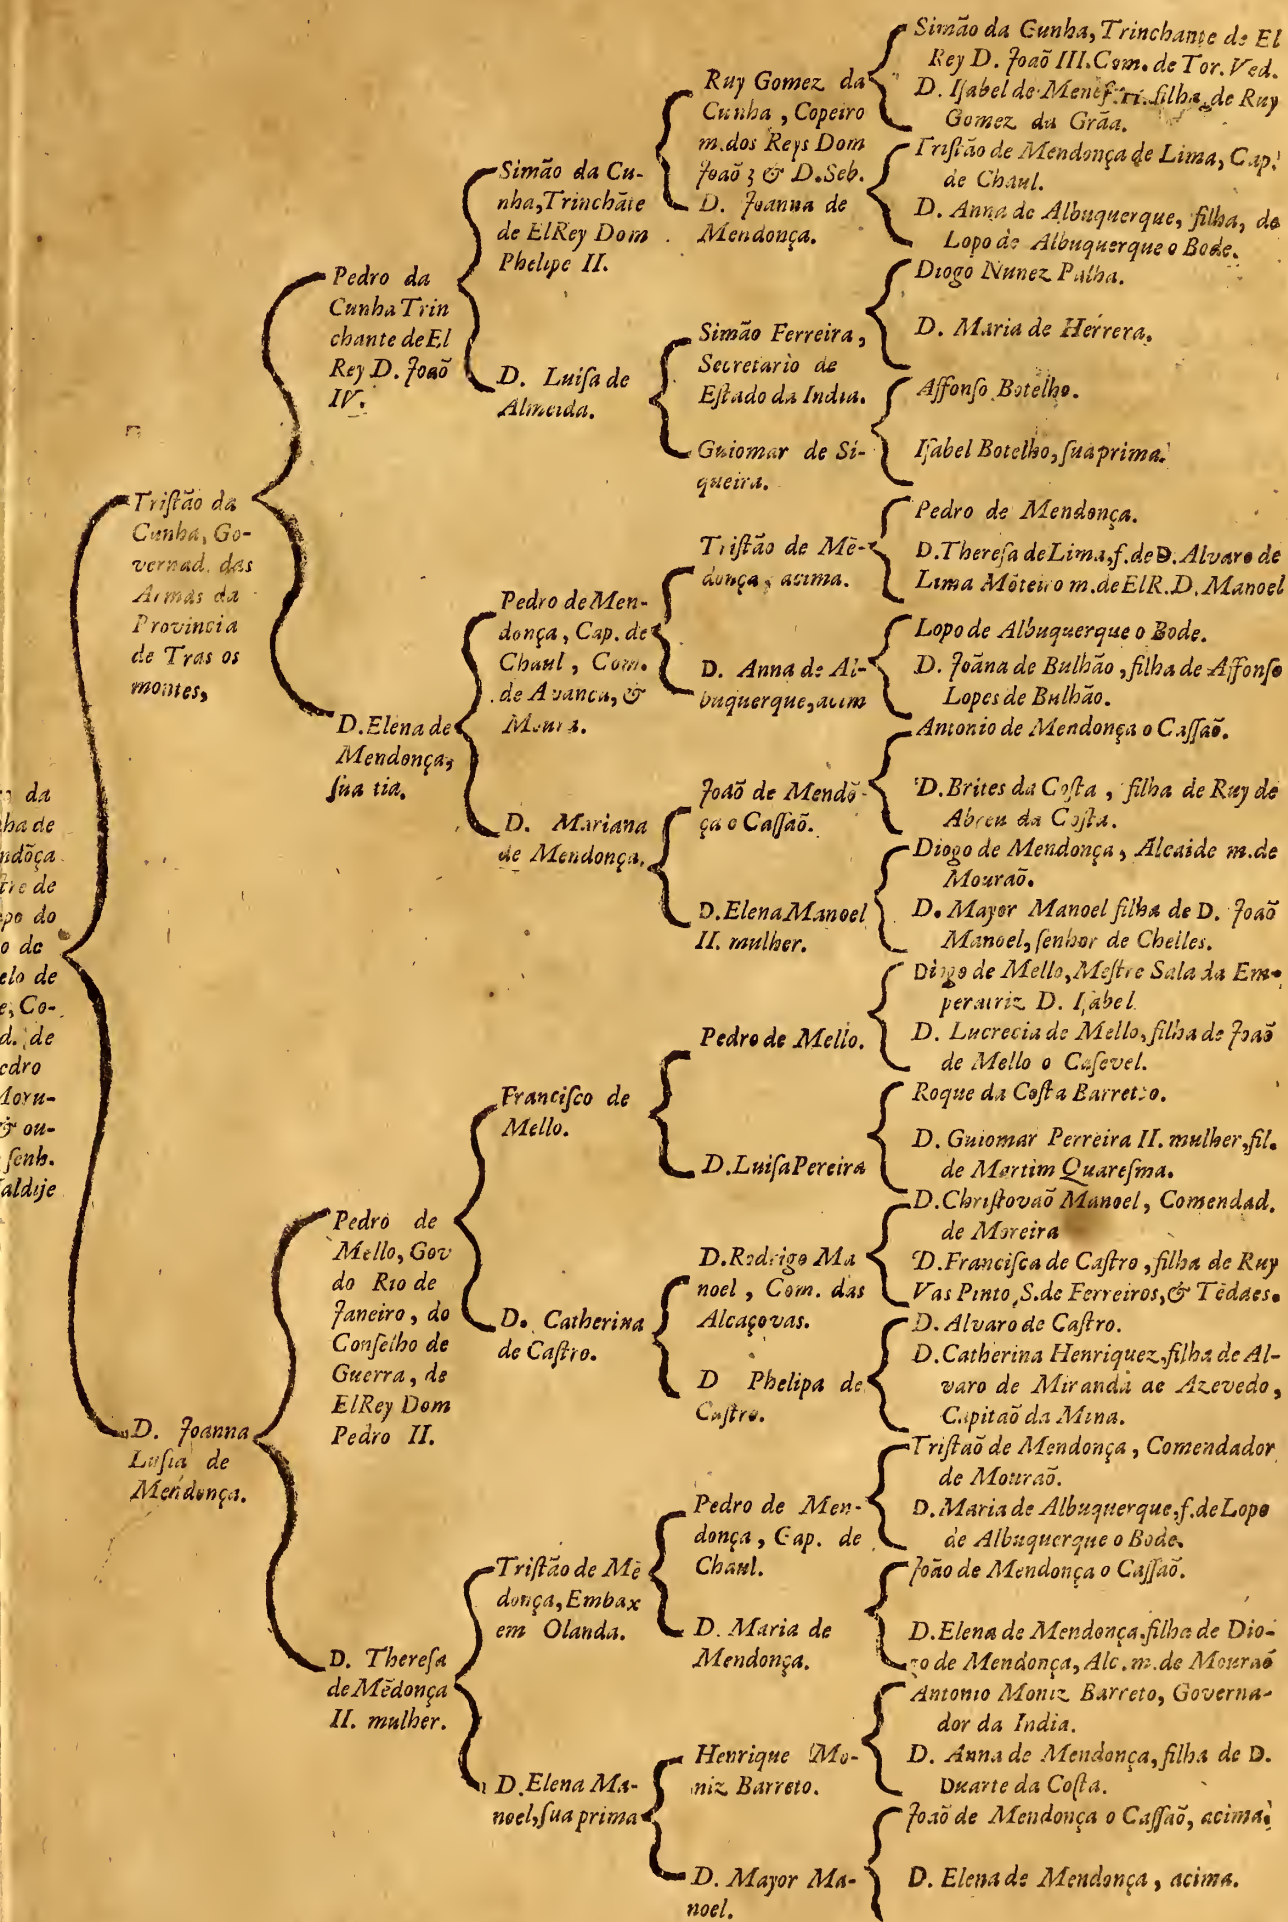 da
ha de
ndõça
tre de
po do
o de
elo de
e, Co-
d. de
edro
Moru-
& ou-
ſenh.
aldije
Triſtão da
Cunha, Go-
vernad. das
Armas da
Provincia
de Tras os
montes,
D. Joanna
Luſia de
Mendonça.
Pedro da
Cunha Trin
chante de El
Rey D. Joaõ
IV.
D. Elena de
Mendonça,
ſua tia.
Pedro de
Mello, Gov
do Rio de
Janeiro, do
Conſelho de
Guerra, de
ElRey Dom
Pedro II.
D. Thereſa
de Mẽdonça
II. mulher.
Simão da Cu-
nha, Trinchãte
de ElRey Dom
Phelipe II.
D. Luiſa de
Almeida.
Pedro de Men-
donça, Cap. de
Chaul, Com.
de Avanca, &
Moura.
D. Mariana
de Mendonça.
Franciſco de
Mello.
D. Catherina
de Caſtro.
Triſtão de Mẽ
donça, Embax
em Olanda.
D. Elena Ma-
noel, ſua prima
Ruy Gomez da
Cunha, Copeiro
m. dos Reys Dom
Joaõ 3 & D. Seb.
D. Joanna de
Mendonça.
Simão Ferreira,
Secretario de
Eſtado da India.
Guiomar de Si-
queira.
Triſtão de Mẽ-
donça, acima.
D. Anna de Al-
buquerque, acim
Joaõ de Mendõ-
ça o Caſſaõ.
D. Elena Manoel
II. mulher.
Pedro de Mello.
D. Luiſa Pereira
D. Rodrigo Ma
noel, Com. das
Alcaçovas.
D Phelipa de
Caſtro.
Pedro de Men-
donça, Cap. de
Chaul.
D. Maria de
Mendonça.
Henrique Mo-
niz Barreto.
D. Mayor Ma-
noel.
Simão da Cunha, Trinchante de El
Rey D. Joaõ III. Com. de Tor. Ved.
D. Iſabel de filha de Ruy
Gomez da Grãa.
Triſtão de Mendonça de Lima, Cap.
de Chaul.
D. Anna de Albuquerque, filha, de
Lopo de Albuquerque o Bode.
Diogo Nunez Palha.
D. Maria de Herrera.
Affonſo Botelho.
Iſabel Botelho, ſua prima.
Pedro de Mendonça.
D. Thereſa de Lima, f. de D. Alvaro de
Lima Mõteiro m. de ElR. D. Manoel
Lopo de Albuquerque o Bode.
D. Joãna de Bulhão, filha de Affonſo
Lopes de Bulhão.
Antonio de Mendonça o Caſſaõ.
D. Brites da Coſta, filha de Ruy de
Abreu da Coſta.
Diogo de Mendonça, Alcaide m. de
Mouraõ.
D. Mayor Manoel filha de D. Joaõ
Manoel, ſenhor de Chelles.
Diogo de Mello, Meſtre Sala da Em-
peratriz D. Iſabel
D. Lucrecia de Mello, filha de Joaõ
de Mello o Caſevel.
Roque da Coſta Barretto.
D. Guiomar Perreira II. mulher, fil.
de Martim Quareſma.
D. Chriſtovaõ Manoel, Comendad.
de Moreira
D. Franciſca de Caſtro, filha de Ruy
Vas Pinto, S. de Ferreiros, & Tẽdaes.
D. Alvaro de Caſtro.
D. Catherina Henriquez, filha de Al-
varo de Miranda de Azevedo,
Capitaõ da Mina.
Triſtaõ de Mendonça, Comendador
de Mouraõ.
D. Maria de Albuquerque, f. de Lopo
de Albuquerque o Bode.
João de Mendonça o Caſſaõ.
D. Elena de Mendonça. filha de Dio-
go de Mendonça, Alc. m. de Mouraõ
Antonio Moniz Barreto, Governa-
dor da India.
D. Anna de Mendonça, filha de D.
Duarte da Coſta.
Joaõ de Mendonça o Caſſaõ, acima.
D. Elena de Mendonça, acima.